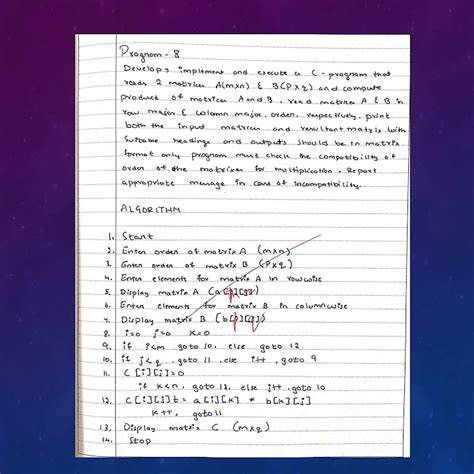 Program - 8
Develop, implement and execute a C - program that
reads 2 matrices A(mxn) & B(pxq) and compute
product of matrices A and B, read matrix A & B in
row major & column major, order, respectively, print
both the input matrices and resultant matrix with
suitable headings and outputs should be in matrix
format only program must check the compatibility of
orders of the matrixes for multiplication. Report
appropriate message in case of incompatibility.
ALGORITHM
1. Start
2. Enter order of matrix A (mxn)
3. Enter order of matrix B (pxq)
4. Enter elements for matrix A in rowwise
5. Display matrix A
6. Enter elements for matrix B in columnwise
7. Display matrix B
8. i=0 j=0 k=0
9. if i<m goto 10, else goto 12
10. if j<q goto 11 else i++, goto 9
11. C[i][j]=0
if k<n, goto 12, else j++ goto 10
12. C[i][j]t = a[i][k] * b[k][j]
k++, goto 11
13. Display matrix C (mxq)
14. Stop